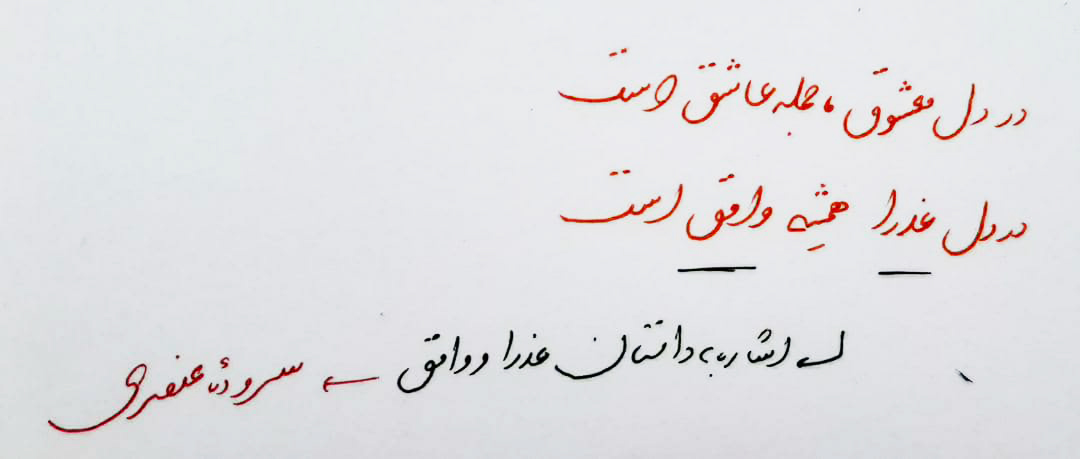 در دل معشوق، جمله عاشق است
در دل عذرا همیشه وامق است
↳ اشاره به داستان عذرا و وامق ← سرودهٔ عنصری